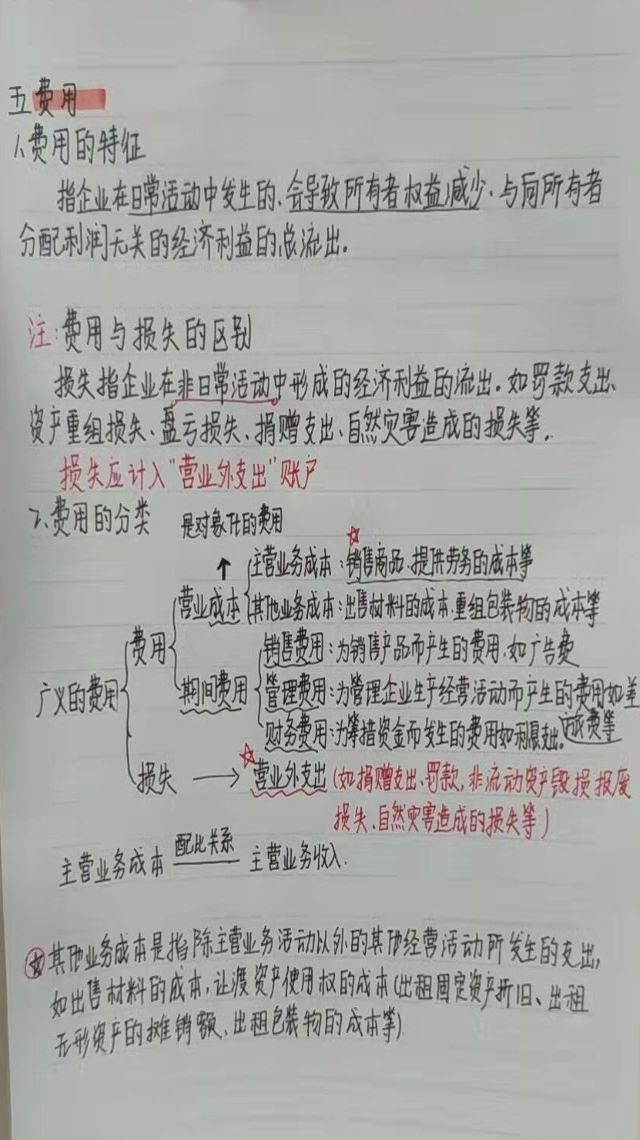 五费用
1、费用的特征
指企业在日常活动中发生的、会导致所有者权益减少、与向所有者
分配利润无关的经济利益的总流出。
注:费用与损失的区别
损失指企业在非日常活动中形成的经济利益的流出。如罚款支出、
资产重组损失、盘亏损失、捐赠支出、自然灾害造成的损失等。
损失应计入“营业外支出”账户
2、费用的分类
是对象化的费用
主营业务成本:销售商品、提供劳务的成本等
营业成本
其他业务成本:出售材料的成本、重组包装物的成本等
费用
销售费用:为销售产品而产生的费用、如广告费
广义的费用
期间费用
管理费用:为管理企业生产经营活动而产生的费用如差
旅费等
财务费用:为筹措资金而发生的费用如利息支出。
损失
营业外支出(如捐赠支出、罚款,非流动资产毁损报废
损失、自然灾害造成的损失等)
主营业务成本 配比关系 主营业务收入.
其他业务成本是指除主营业务活动以外的其他经营活动所发生的支出,
如出售材料的成本,让渡资产使用权的成本(出租固定资产折旧、出租
无形资产的摊销额、出租包装物的成本等)